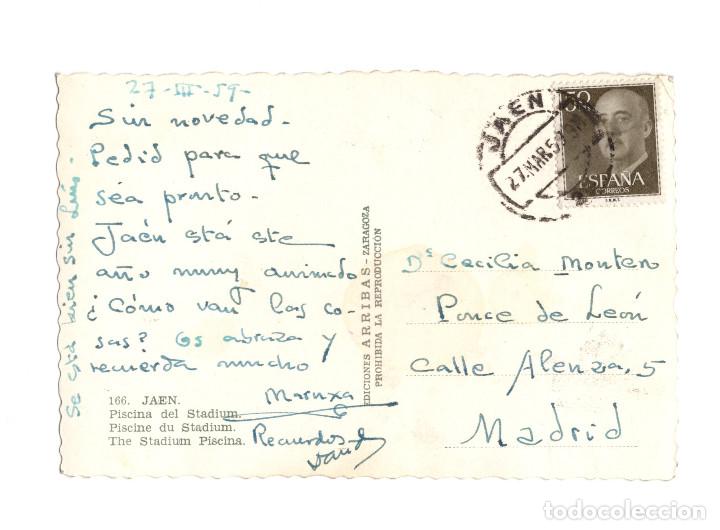 27-III-59-
Sin novedad-
Pedid para que
séa pronto-
Jaén está este
año muy animado
¿Cómo van las co-
sas? Os abraza y
recuerda mucho
Maruxa
Recuerdos-
Se está bien sin Luis-
166. JAEN.
Piscina del Stadium.
Piscine du Stadium.
The Stadium Piscina.
EDICIONES ARRIBAS - ZARAGOZA
PROHIBIDA LA REPRODUCCIÓN
JAEN
27 MAR 5
50
ESPAÑA
CORREOS
Dª Cecilia Montero
Ponce de León
Calle Alenza, 5
Madrid
todocoleccion